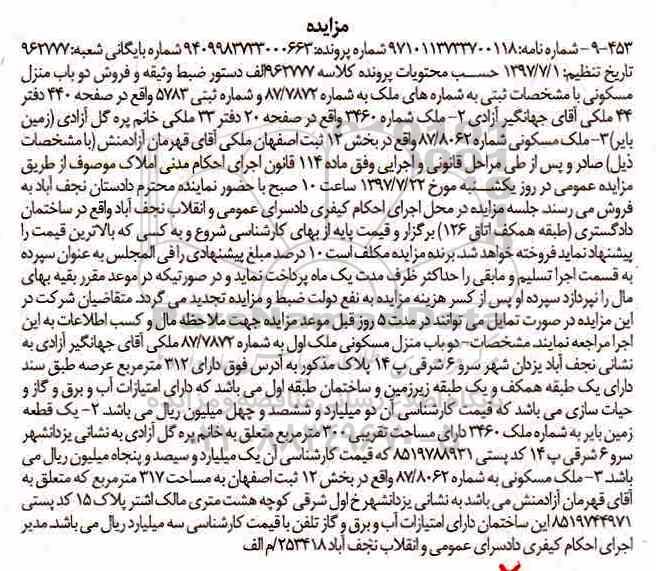 مزایده
۹-۴۵۳- شماره نامه: ۹۷۱۰۱۱۳۷۳۳۷۰۰۱۱۸ شماره پرونده: ۹۴۰۹۹۸۳۷۳۳۰۰۰۶۶۳ شماره بایگانی شعبه: ۹۶۲۷۷۷
تاریخ تنظیم: ۱۳۹۷/۷/۱ حسب محتویات پرونده کلاسه ۹۶۲۷۷۷الف دستور ضبط وثیقه و فروش دو باب منزل
مسکونی با مشخصات ثبتی به شماره های ملک به شماره ۸۷/۷۸۷۲ و شماره ثبتی ۵۷۸۳ واقع در صفحه ۴۴۰ دفتر
۴۴ ملکی آقای جهانگیر آزادی ۲- ملک شماره ۳۴۶۰ واقع در صفحه ۲۰ دفتر ۳۳ ملکی خانم پره گل آزادی (زمین
بایر) ۳- ملک مسکونی شماره ۸۷/۸۰۶۲ واقع در بخش ۱۲ ثبت اصفهان ملکی آقای قهرمان آزادمنش (با مشخصات
ذیل) صادر و پس از طی مراحل قانونی و اجرایی وفق ماده ۱۱۴ قانون اجرای احکام مدنی املاک موصوف از طریق
مزایده عمومی در روز یکشنبه مورخ ۱۳۹۷/۷/۲۲ ساعت ۱۰ صبح با حضور نماینده محترم دادستان نجف آباد به
فروش می رسند. جلسه مزایده در محل اجرای احکام کیفری دادسرای عمومی و انقلاب نجف آباد واقع در ساختمان
دادگستری (طبقه همکف اتاق ۱۲۶) برگزار و قیمت پایه از بهای کارشناسی شروع و به کسی که بالاترین قیمت را
پیشنهاد نماید فروخته خواهد شد. برنده مزایده مکلف است ۱۰ درصد مبلغ پیشنهادی را فی المجلس به عنوان سپرده
به قسمت اجرا تسلیم و مابقی را حداکثر ظرف مدت یک ماه پرداخت نماید و در صورتیکه در موعد مقرر بقیه بهای
مال را نپردازد سپرده او پس از کسر هزینه مزایده به نفع دولت ضبط و مزایده تجدید می گردد. متقاضیان شرکت در
این مزایده در صورت تمایل می توانند در مدت ۵ روز قبل موعد مزایده جهت ملاحظه مال و کسب اطلاعات به این
اجرا مراجعه نمایند. مشخصات- دو باب منزل مسکونی ملک اول به شماره ۸۷/۷۸۷۲ ملکی آقای جهانگیر آزادی به
نشانی نجف آباد یزدان شهر سرو ۶ شرقی پ ۱۴ پلاک مذکور به آدرس فوق دارای ۳۱۲ مترمربع عرصه طبق سند
دارای یک طبقه همکف و یک طبقه زیرزمین و ساختمان طبقه اول می باشد که دارای امتیازات آب و برق و گاز و
حیات سازی می باشد که قیمت کارشناسی آن دو میلیارد و ششصد و چهل میلیون ریال می باشد. ۲- یک قطعه
زمین بایر به شماره ملک ۳۴۶۰ دارای مساحت تقریبی ۳۰۰ مترمربع متعلق به خانم پره گل آزادی به نشانی یزدانشهر
سرو ۶ شرقی پ ۱۴ کد پستی ۸۵۱۹۷۸۸۹۳۱ که قیمت کارشناسی آن یک میلیارد و سیصد و پنجاه میلیون ریال می
باشد. ۳- ملک مسکونی به شماره ۸۷/۸۰۶۲ واقع در بخش ۱۲ ثبت اصفهان به مساحت ۳۱۷ مترمربع که متعلق به
آقای قهرمان آزادمنش می باشد به نشانی یزدانشهر خ اول شرقی کوچه هشت متری مالک اشتر پلاک ۱۵ کد پستی
۸۵۱۹۷۴۴۹۷۱ این ساختمان دارای امتیازات آب و برق و گاز تلفن با قیمت کارشناسی سه میلیارد ریال می باشد. مدیر
اجرای احکام کیفری دادسرای عمومی و انقلاب نجف آباد ۲۵۳۴۱۸/م الف